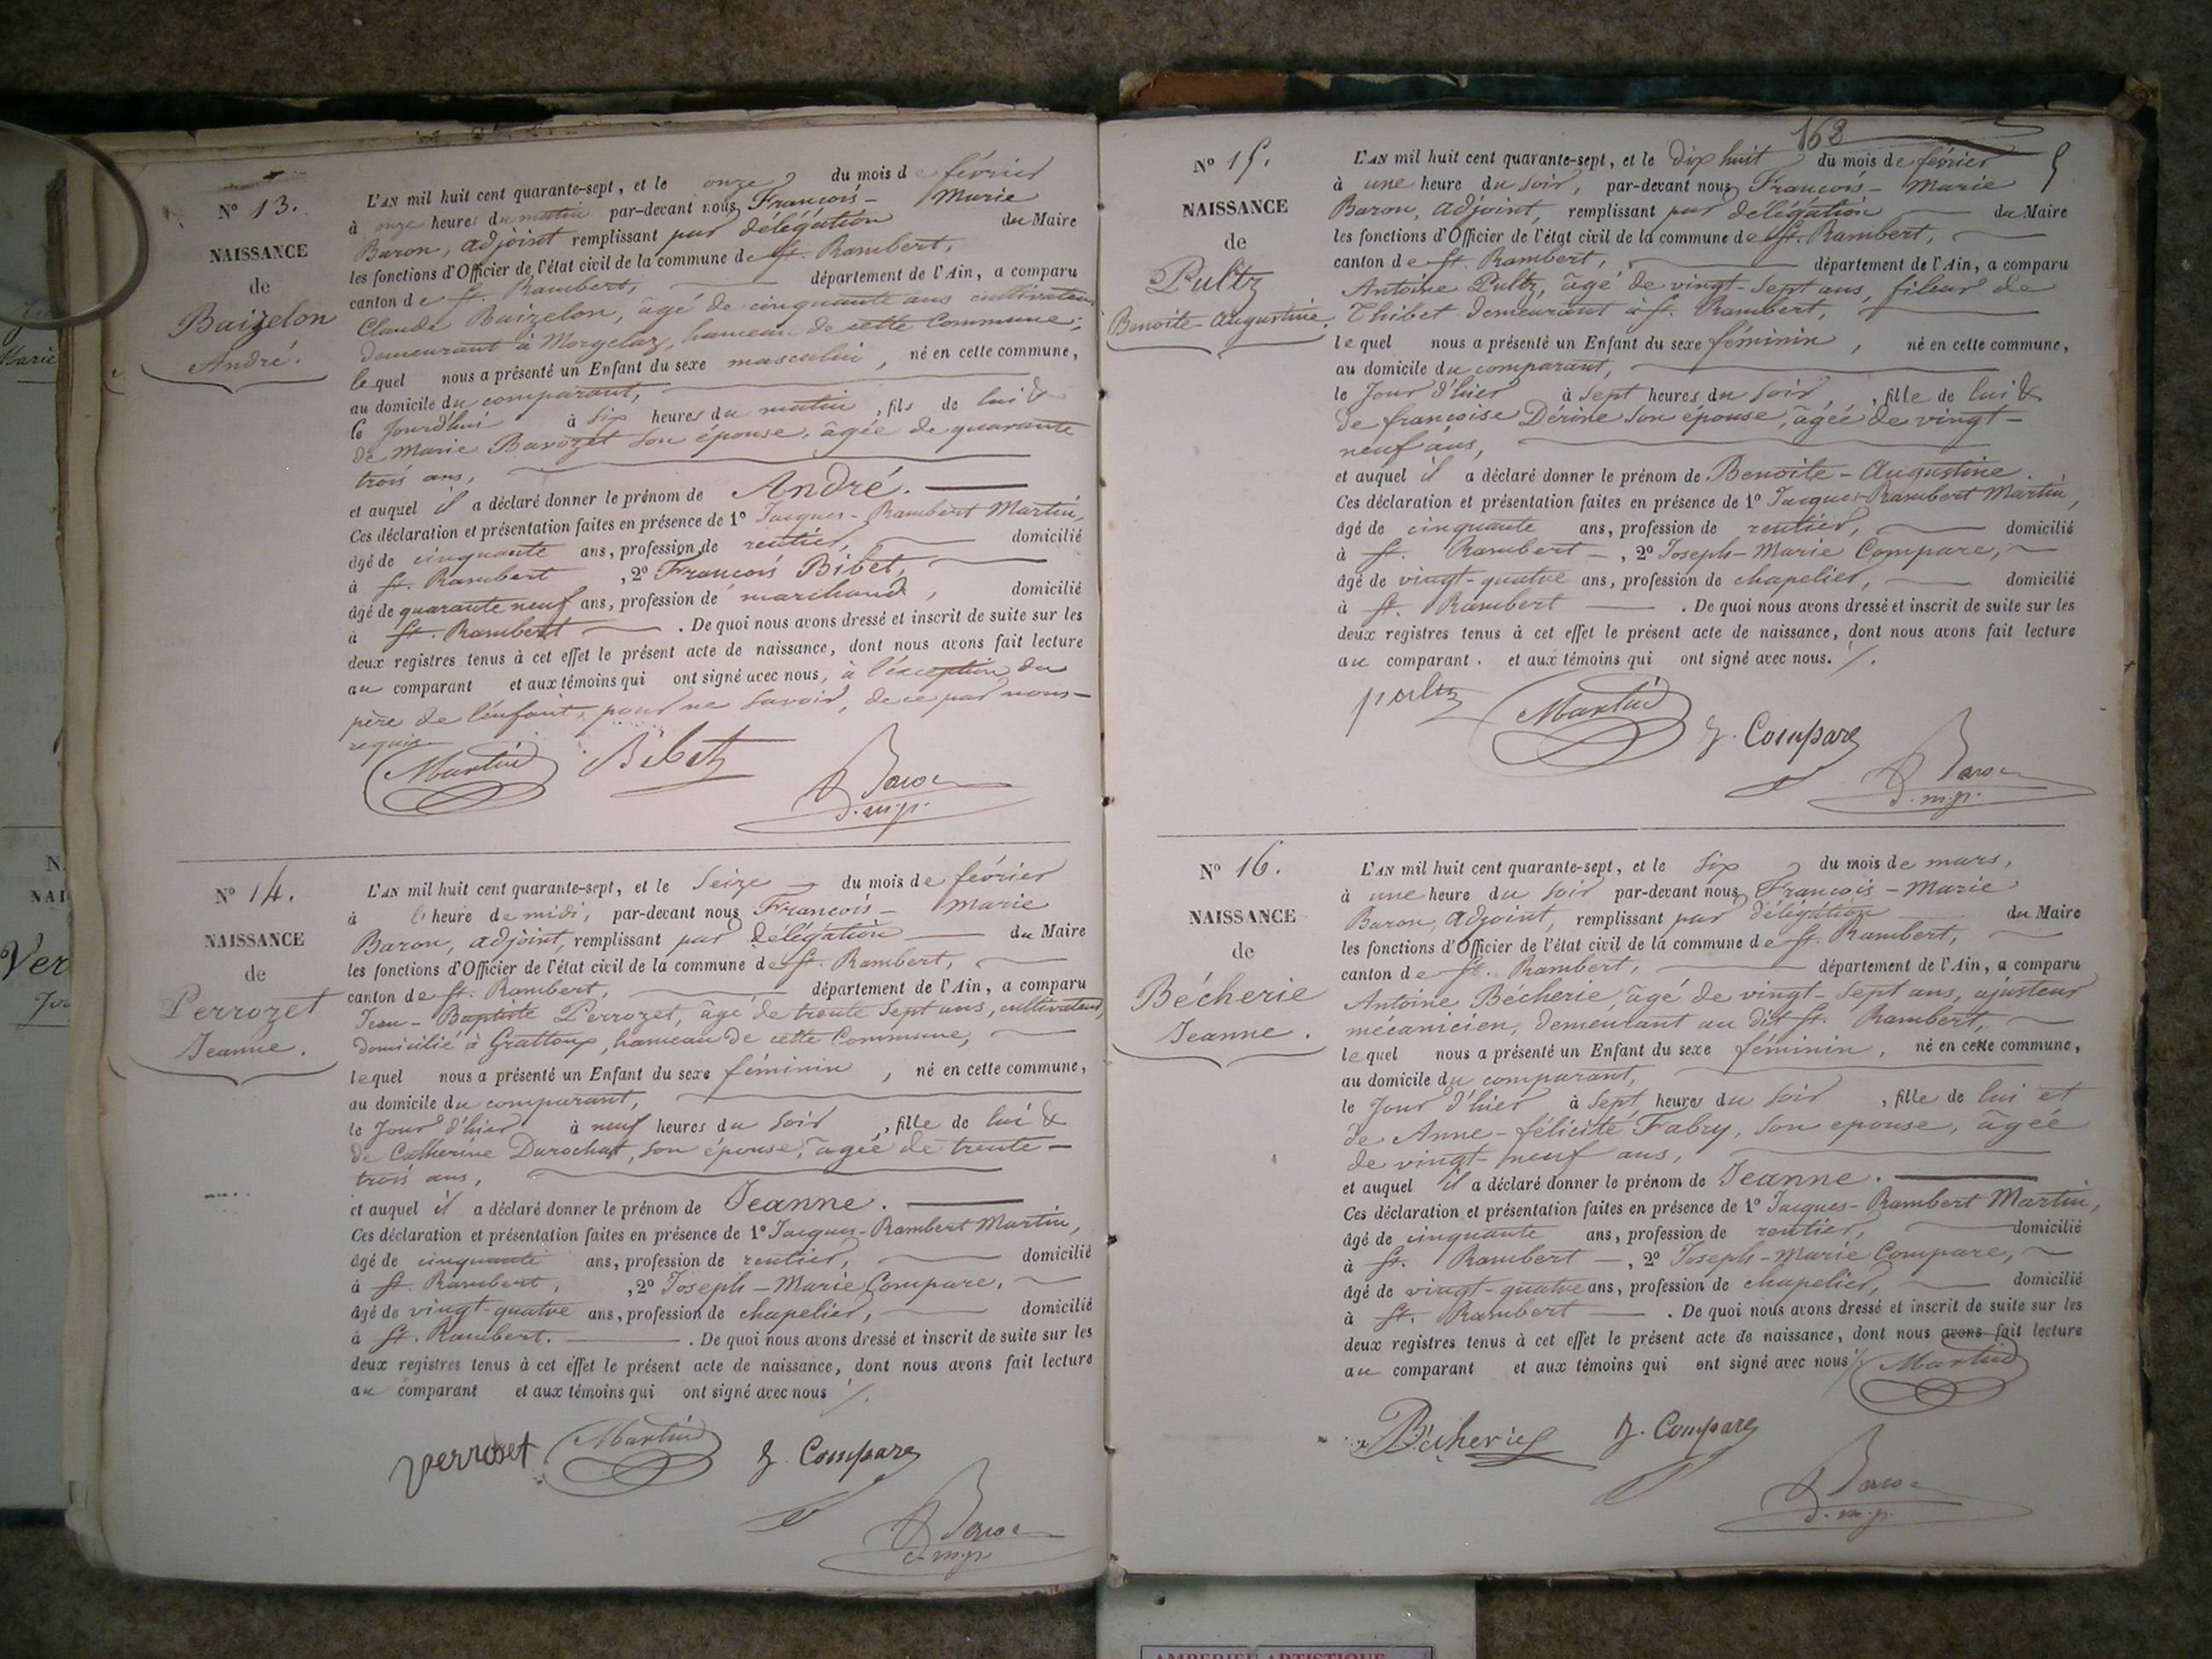 N° 13.
NAISSANCE
de
Baizelon
André.
L'AN mil huit cent quarante-sept, et le onze du mois de février
à onze heures du matin par-devant nous François- Marie
Baron, adjoint remplissant par délégation du Maire
les fonctions d'Officier de l'état civil de la commune de St. Rambert,
canton de St. Rambert, département de l'Ain, a comparu
Claude Baizelon, âgé de cinquante ans cultivateur
demeurant à Morgelaz, hameau de cette Commune;
lequel nous a présenté un Enfant du sexe masculin, né en cette commune,
au domicile du comparant,
le jourd'hui à six heures du matin, fils de lui &
de Marie Bavozet son épouse, âgée de quarante
trois ans,
et auquel il a déclaré donner le prénom de André.
Ces déclaration et présentation faites en présence de 1° Jacques-Rambert Martin,
âgé de cinquante ans, profession de rentier, domicilié
à St. Rambert, 2° François Bibet,
âgé de quarante neuf ans, profession de marchand, domicilié
à St. Rambert. De quoi nous avons dressé et inscrit de suite sur les
deux registres tenus à cet effet le présent acte de naissance, dont nous avons fait lecture
au comparant et aux témoins qui ont signé avec nous, à l'exception du
père de l'enfant, pour ne savoir, de ce par nous-
requis
Martin Bibet Baron
d.m.p.
N° 14.
NAISSANCE
de
Perrozet
Jeanne.
L'AN mil huit cent quarante-sept, et le Seize du mois de février
à l'heure de midi, par-devant nous François- Marie
Baron, adjoint, remplissant par délégation du Maire
les fonctions d'Officier de l'état civil de la commune de St. Rambert,
canton de St. Rambert, département de l'Ain, a comparu
Jean-Baptiste Perrozet, âgé de trente sept ans, cultivateur,
domicilié à Grattoux, hameau de cette Commune,
lequel nous a présenté un Enfant du sexe féminin, né en cette commune,
au domicile du comparant,
le Jour d'hier à neuf heures du soir, fille de lui &
de Catherine Durochat, son épouse, âgée de trente-
trois ans,
et auquel il a déclaré donner le prénom de Jeanne.
Ces déclaration et présentation faites en présence de 1° Jacques-Rambert Martin,
âgé de cinquante ans, profession de rentier, domicilié
à St. Rambert, 2° Joseph-Marie Compare,
âgé de vingt-quatre ans, profession de chapelier, domicilié
à St. Rambert. De quoi nous avons dressé et inscrit de suite sur les
deux registres tenus à cet effet le présent acte de naissance, dont nous avons fait lecture
au comparant et aux témoins qui ont signé avec nous /.
perroset Martin J. Compare
Baron
d.m.p.
168
5
N° 15.
NAISSANCE
de
Pultz
Benoite-Augustine.
L'AN mil huit cent quarante-sept, et le dix huit du mois de février
à une heure du soir, par-devant nous François-Marie
Baron, adjoint, remplissant par délégation du Maire
les fonctions d'Officier de l'état civil de la commune de St. Rambert,
canton de St. Rambert, département de l'Ain, a comparu
Antoine Pultz, âgé de vingt-sept ans, fileur de
Thibet demeurant à St. Rambert,
lequel nous a présenté un Enfant du sexe féminin, né en cette commune,
au domicile du comparant,
le Jour d'hier à sept heures du soir, fille de lui &
de françoise Dérine son épouse, âgée de vingt-
neuf ans,
et auquel il a déclaré donner le prénom de Benoite-Augustine.
Ces déclaration et présentation faites en présence de 1° Jacques-Rambert Martin,
âgé de cinquante ans, profession de rentier, domicilié
à St. Rambert -, 2° Joseph-Marie Compare,
âgé de vingt-quatre ans, profession de chapelier, domicilié
à St. Rambert. De quoi nous avons dressé et inscrit de suite sur les
deux registres tenus à cet effet le présent acte de naissance, dont nous avons fait lecture
au comparant. et aux témoins qui ont signé avec nous. /.
pultz Martin J. Compare
Baron
d.m.p.
N° 16.
NAISSANCE
de
Bécherie
Jeanne.
L'AN mil huit cent quarante-sept, et le six du mois de mars,
à une heure du soir par-devant nous François-Marie
Baron, adjoint, remplissant par délégation du Maire
les fonctions d'Officier de l'état civil de la commune de St. Rambert,
canton de St. Rambert, département de l'Ain, a comparu
Antoine Bécherie, âgé de vingt-sept ans, ajusteur
mécanicien, demeurant au dit St. Rambert,
lequel nous a présenté un Enfant du sexe féminin, né en cette commune,
au domicile du comparant,
le Jour d'hier à sept heures du soir, fille de lui et
de Anne-félicité Fabry, son epouse, âgée
de vingt-neuf ans,
et auquel il a déclaré donner le prénom de Jeanne.
Ces déclaration et présentation faites en présence de 1° Jacques-Rambert Martin,
âgé de cinquante ans, profession de rentier, domicilié
à St. Rambert -, 2° Joseph-Marie Compare,
âgé de vingt-quatre ans, profession de chapelier, domicilié
à St. Rambert. De quoi nous avons dressé et inscrit de suite sur les
deux registres tenus à cet effet le présent acte de naissance, dont nous avons fait lecture
au comparant et aux témoins qui ont signé avec nous / Martin
Bécherie J. Compare
Baron
d.m.p.
AMBERIEU ARTISTIQUE